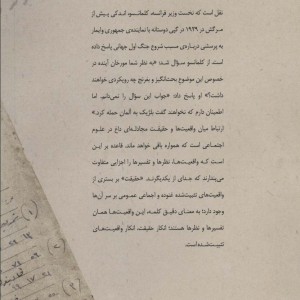 نقل است که نخست وزیر فرانسه، کلمانسو، اندکی پیش از
مرگش در ۱۹۲۹ در گپی دوستانه با نماینده‌ی جمهوری وایمار
به پرسشی درباره‌ی مسبب شروع جنگ اول جهانی پاسخ داد.
از کلمانسو سؤال شد: «به نظر شما مورخان آینده در
خصوص این موضوع بحث‌انگیز و بغرنج چه رویکردی خواهند
داشت؟» او پاسخ داد «جواب این سؤال را نمی‌دانم. اما
اطمینان دارم که نخواهند گفت بلژیک به آلمان حمله کرد.»
ارتباط میان واقعیت‌ها و حقیقت مجادله‌ای داغ در علوم
اجتماعی است که همواره باقی خواهد ماند. قاعده بر این
است که واقعیت‌ها، نظرها و تفسیرها را اجزایی متفاوت
می‌پندارند که جدای از یکدیگرند. «حقیقت» بر بستری از
واقعیت‌های تثبیت‌شده و اجماعی عمومی بر سر آن‌ها
وجود دارد؛ به معنای دقیق کلمه، این واقعیت‌ها همان
تفسیرها و نظرها هستند؛ انکار حقیقت، انکار واقعیت‌های
تثبیت‌شده است.